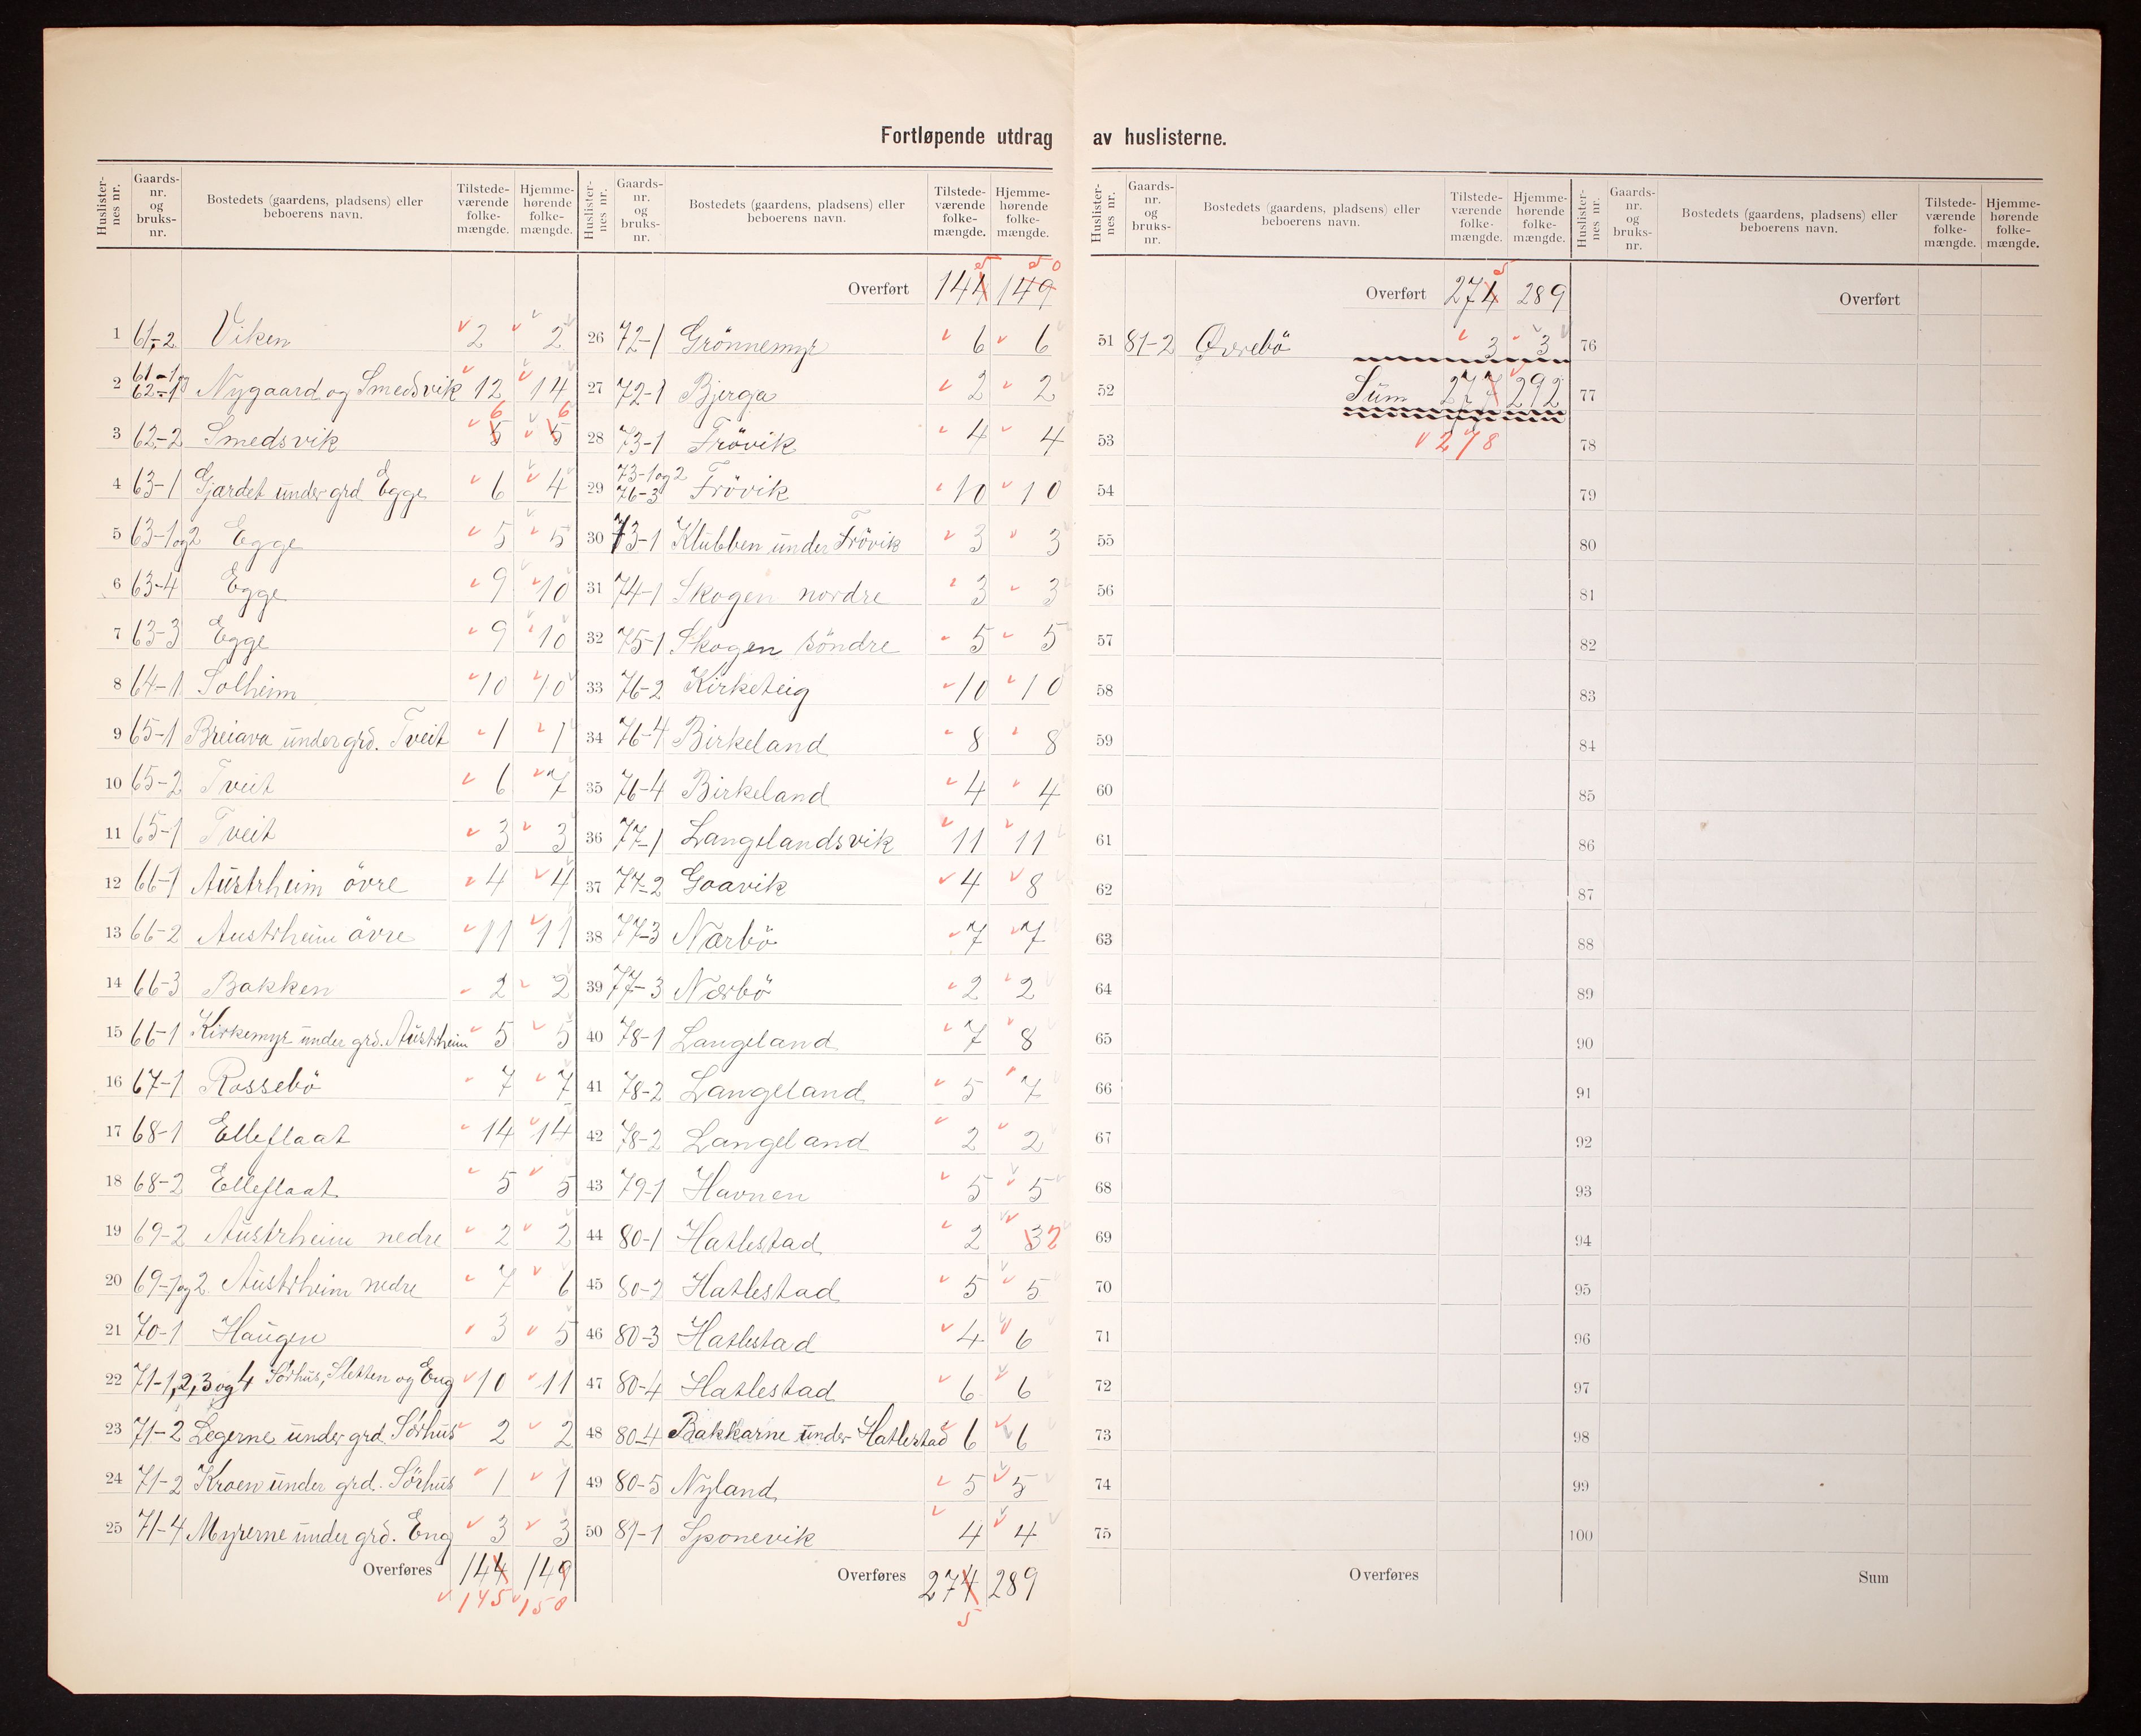 Fortløpende utdrag av huslisterne.
Huslister-nes nr. | Gaards-nr. og bruks-nr. | Bostedets (gaardens, pladsens) eller beboerens navn. | Tilstede-værende folke-mængde. | Hjemme-hørende folke-mængde.
1 61-2 Viken 2 2
2 61-1 og 62-1 Nygaard og Smedsvik 12 14
3 62-2 Smedsvik 5 6 5 6
4 63-1 Gjærdet under grd Egge 6 4
5 63-1og2 Egge 5 5
6 63-4 Egge 9 10
7 63-3 Egge 9 10
8 64-1 Solheim 10 10
9 65-1 Breiava under grd. Tveit 1 1
10 65-2 Tveit 6 7
11 65-1 Tveit 3 3
12 66-1 Austrheim övre 4 4
13 66-2 Austrheim övre 11 11
14 66-3 Bakken 2 2
15 66-1 Kirkemyr under grd. Austrheim 5 5
16 67-1 Rossebö 7 7
17 68-1 Elleflaat 14 14
18 68-2 Elleflaat 5 5
19 69-2 Austrheim nedre 2 2
20 69-1og2 Austrheim nedre 7 6
21 70-1 Haugen 3 5
22 71-1,2,3og4 Sörhus, Sletten og Eng 10 11
23 71-2 Legerne under grd Sörhus 2 2
24 71-2 Kroen under grd. Sörhus 1 1
25 71-4 Myrerne under grd. Eng 3 3
Overføres 144 149
145 150
Huslister-nes nr. | Gaards-nr. og bruks-nr. | Bostedets (gaardens, pladsens) eller beboerens navn. | Tilstede-værende folke-mængde. | Hjemme-hørende folke-mængde.
Overført 144 5 149 50
26 72-1 Grönnemyr 6 6
27 72-1 Bjerga 2 2
28 73-1 Frövik 4 4
29 73-1og2 76-3 Frövik 10 10
30 73-1 Klubben under Frövik 3 3
31 74-1 Skogen nordre 3 3
32 75-1 Skogen söndre 5 5
33 76-2 Kirketeig 10 10
34 76-4 Birkeland 8 8
35 76-4 Birkeland 4 4
36 77-1 Langelandsvik 11 11
37 77-2 Goavik 4 8
38 77-3 Nærbö 7 7
39 77-3 Nærbö 2 2
40 78-1 Langeland 7 8
41 78-2 Langeland 5 7
42 78-2 Langeland 2 2
43 79-1 Havnen 5 5
44 80-1 Hatlestad 2 3 2
45 80-2 Hatlestad 5 5
46 80-3 Hatlestad 4 6
47 80-4 Hatlestad 6 6
48 80-4 Bakkarne under Hatlestad 6 6
49 80-5 Nyland 5 5
50 81-1 Sponevik 4 4
Overføres 274 289
5
Huslister-nes nr. | Gaards-nr. og bruks-nr. | Bostedets (gaardens, pladsens) eller beboerens navn. | Tilstede-værende folke-mængde. | Hjemme-hørende folke-mængde.
Overført 274 5 289
51 81-2 Øvrebö 3 3
52 Sum 277 292
53 278
54
55
56
57
58
59
60
61
62
63
64
65
66
67
68
69
70
71
72
73
74
75
Overføres
Huslister-nes nr. | Gaards-nr. og bruks-nr. | Bostedets (gaardens, pladsens) eller beboerens navn. | Tilstede-værende folke-mængde. | Hjemme-hørende folke-mængde.
Overført
76
77
78
79
80
81
82
83
84
85
86
87
88
89
90
91
92
93
94
95
96
97
98
99
100
Sum